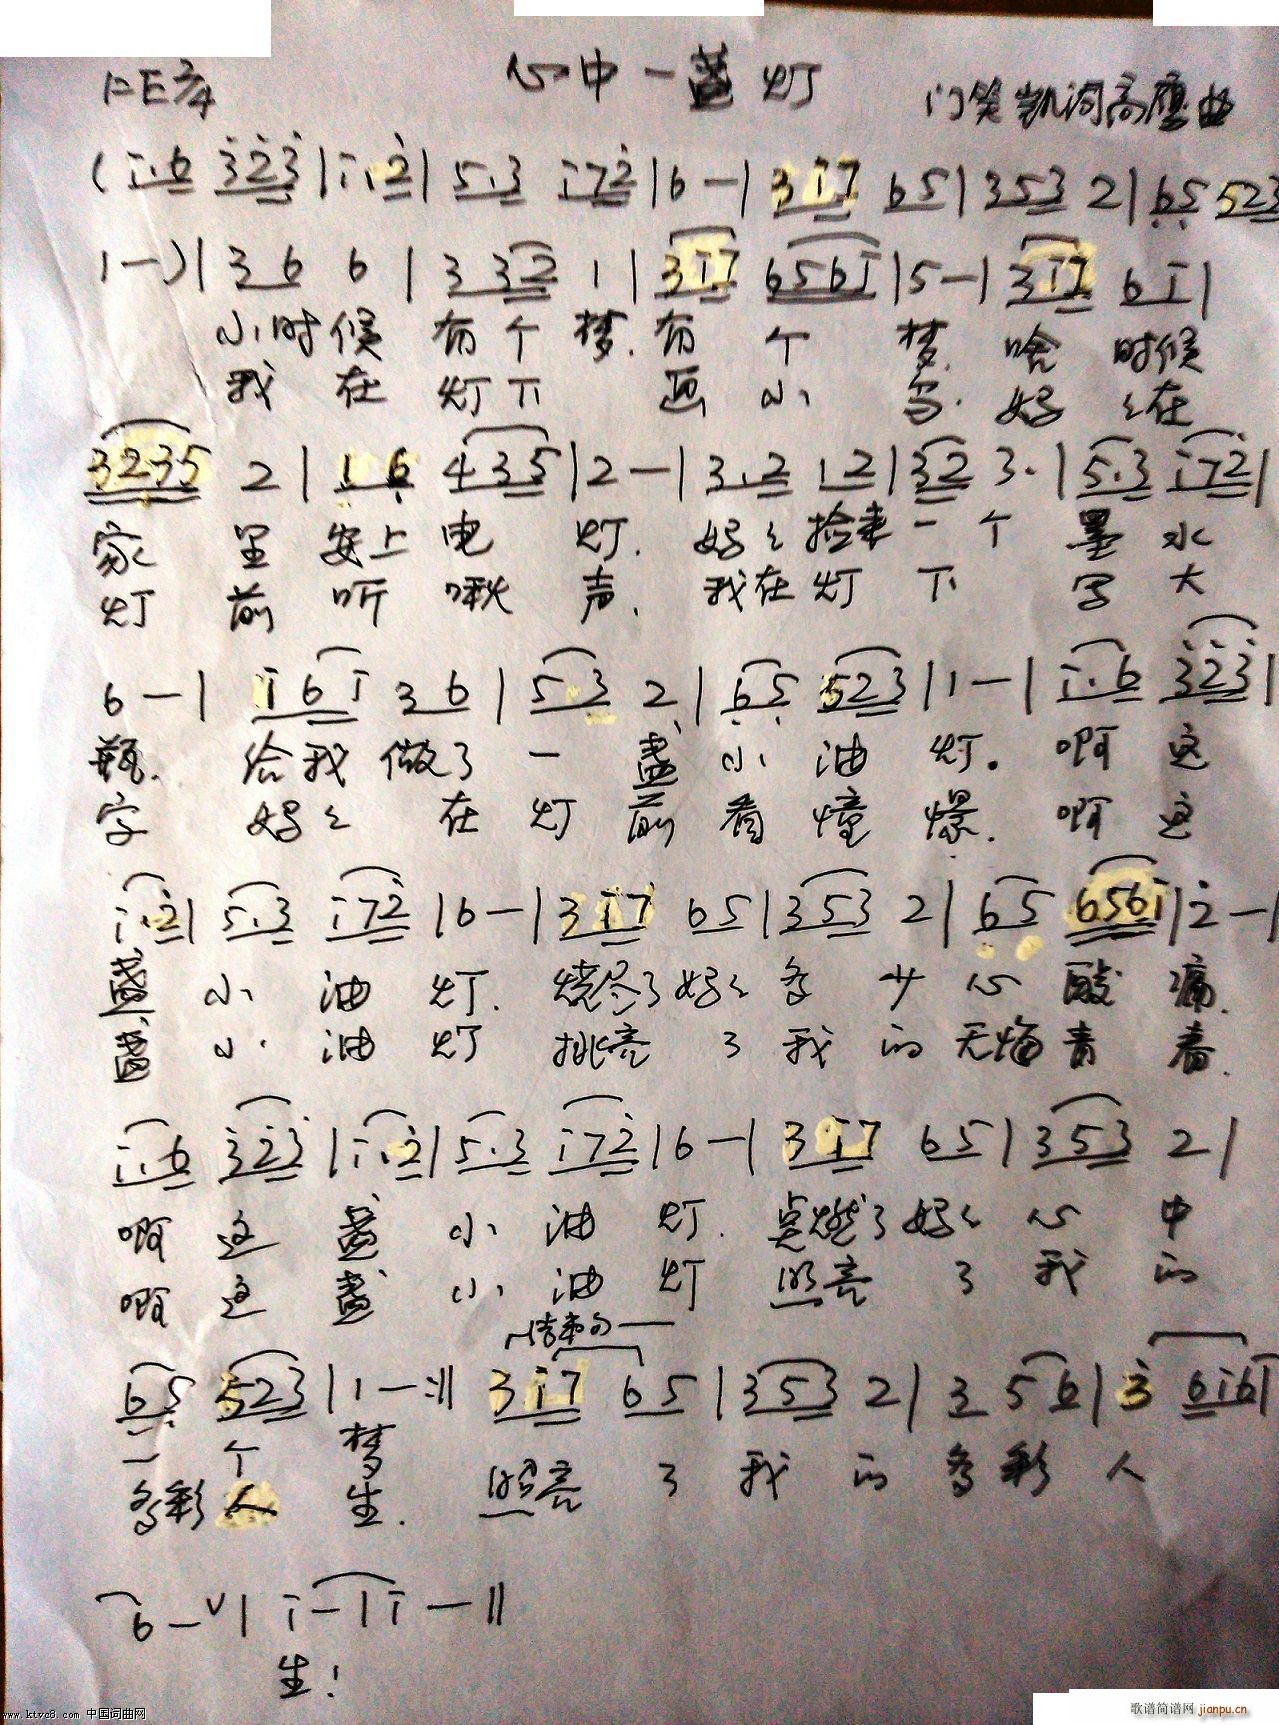 心中一盏灯
1=E 2/4
门笑凯词 高 曲
(i.6 323|i.2|5.3 i72|6—|3i7 65|353 2|65 523
1—)|36 6|3 32 1|3i7 656i|5—|3i7 6i|
小时候 有个梦.有个梦.啥时候
我在灯下画小鸟.妈ミ在
3235 2|1 6 435|2—|3.2 12|32 3.|5.3 i72|
家里安上电灯.妈ミ捡来一个墨水
灯前听 声.我在灯下写大
6—|i6i 36|5.3 2|65 523|1—|i.6 323|
瓶.给我做了一盏小油灯。啊这
字 妈ミ在灯前看憧憬.啊这
i.2|5.3 i72|6—|3i7 65|353 2|65 656i|2—|
盏小油灯.烧尽了妈ミ多少心酸痛.
盏小油灯 挑亮了我的无悔青春.
i.6 323|i.2|5.3 i72|6—|3i7 65|353 2|
啊这盏小油灯.点燃了妈ミ心中
啊这盏小油灯 照亮了我的
结束句
65 523|1—:‖ 3i7 65|353 2|3 56|3 6i6|
一个梦
多彩人生.照亮了我的多彩人
6—∨|i—|i—‖
生!
www.ktvc8.com 中国词曲网
歌谱简谱网 jianpu.cn